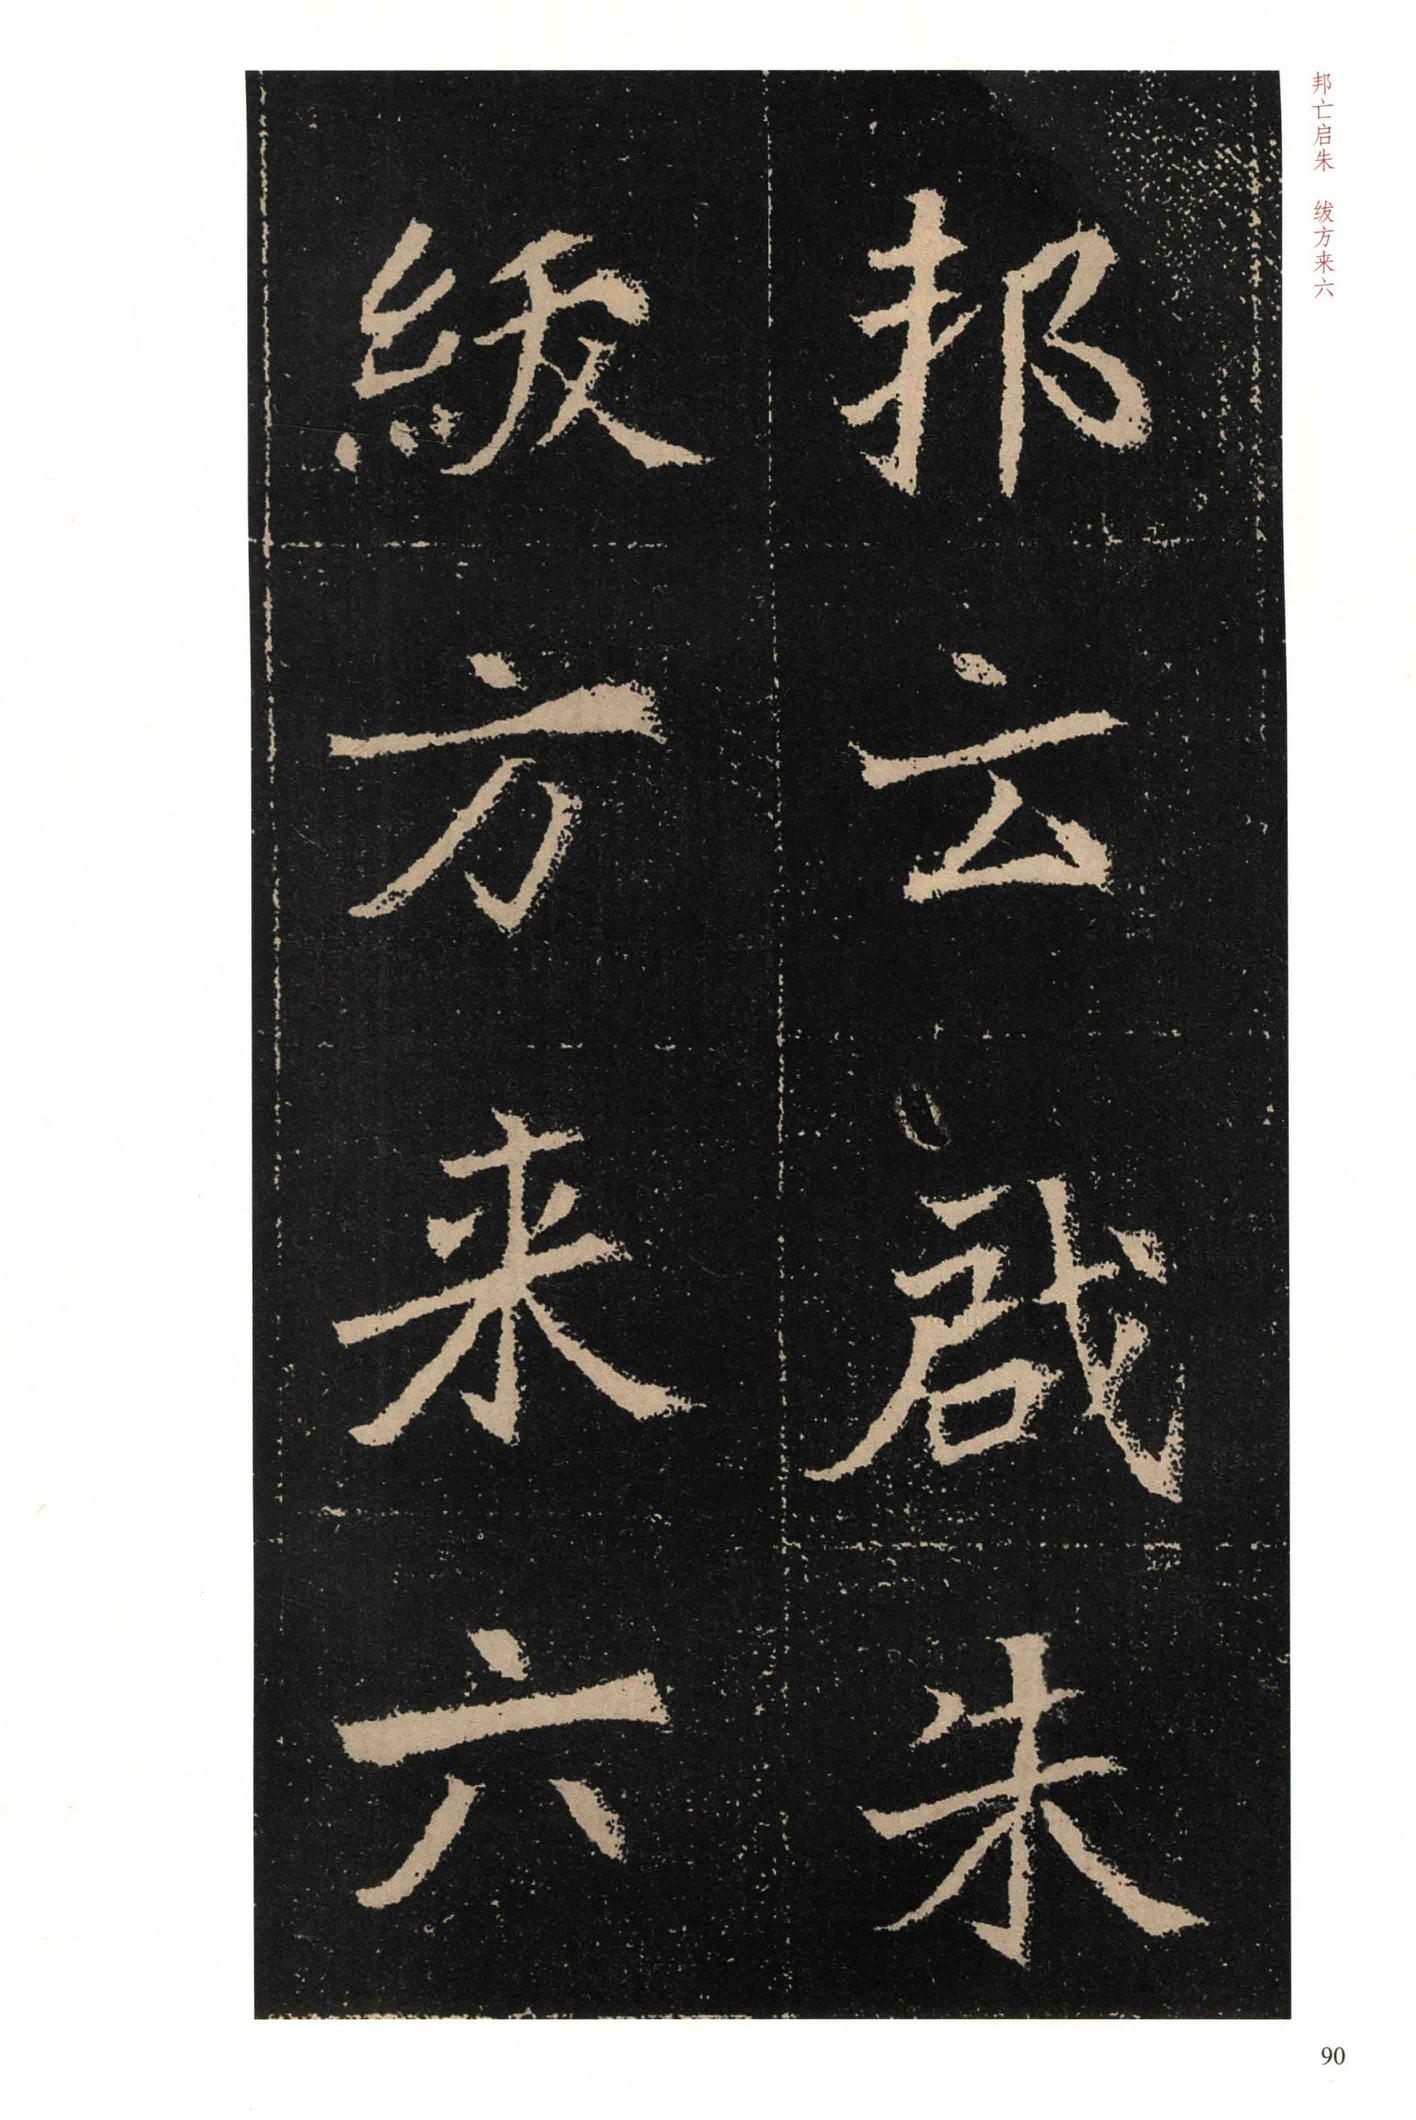 邦亡启朱　绂方来六
邦亡啟朱
紱方来六
90